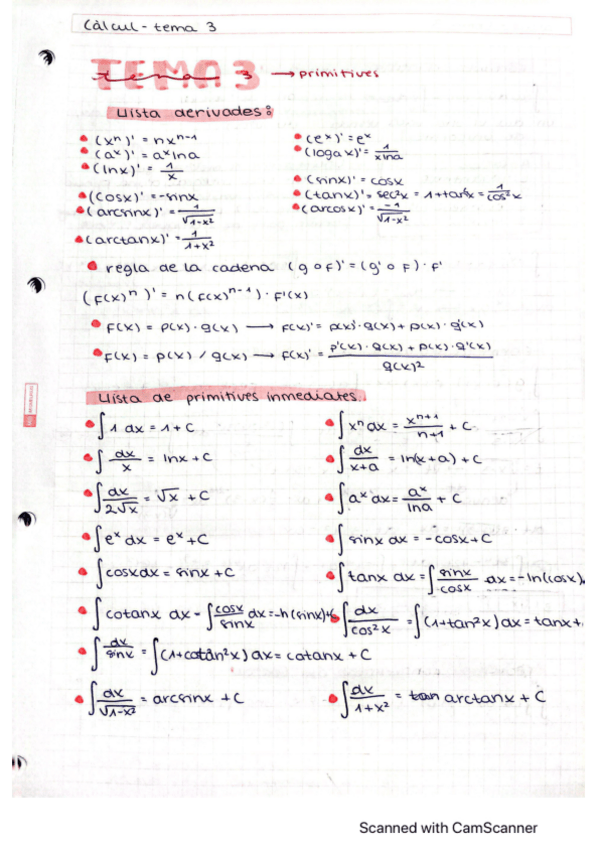 Càlcul - tema 3
TEMA 3 → primitives
tema
Llista derivades:
(xⁿ)' = nxⁿ⁻¹ (eˣ)' = eˣ
(aˣ)' = aˣlna (loga x)' = 1/xlna
(lnx)' = 1/x (sinx)' = cosx
(cosx)' = -sinx (tanx)' = sec²x = 1+tan²x = 1/cos²x
(arcsinx)' = 1/√1-x² (arcosx)' = -1/√1-x²
(arctanx)' = 1/1+x²
regla de la cadena (g o F)' = (g' o F) · F'
(F(x)ⁿ)' = n(F(x)ⁿ⁻¹) · F'(x)
F(x) = p(x) · g(x) → F(x)' = p(x)' · g(x) + p(x) · g'(x)
F(x) = p(x) / g(x) → F(x)' = p'(x) · g(x) + p(x) · g'(x) / g(x)²
Llista de primitives inmediates.
∫1 dx = 1 + C ∫xⁿ dx = xⁿ⁺¹/n+1 + C
∫dx/x = lnx + C ∫dx/x+a = ln(x+a) + C
∫dx/2√x = √x + C ∫aˣ dx = aˣ/lna + C
∫eˣ dx = eˣ + C ∫sinx dx = -cosx + C
∫cosxdx = sinx + C ∫tanx dx = ∫sinx/cosx dx = -ln(cosx)
∫cotanx dx = ∫cosx/sinx dx = -ln(sinx)+ ∫dx/cos²x = ∫(1+tan²x)dx = tanx+
∫dx/sinx = ∫(1+cotan²x)dx = cotanx + C
∫dx/√1-x² = arcsinx + C ∫dx/1+x² = arctanx + C
Scanned with CamScanner